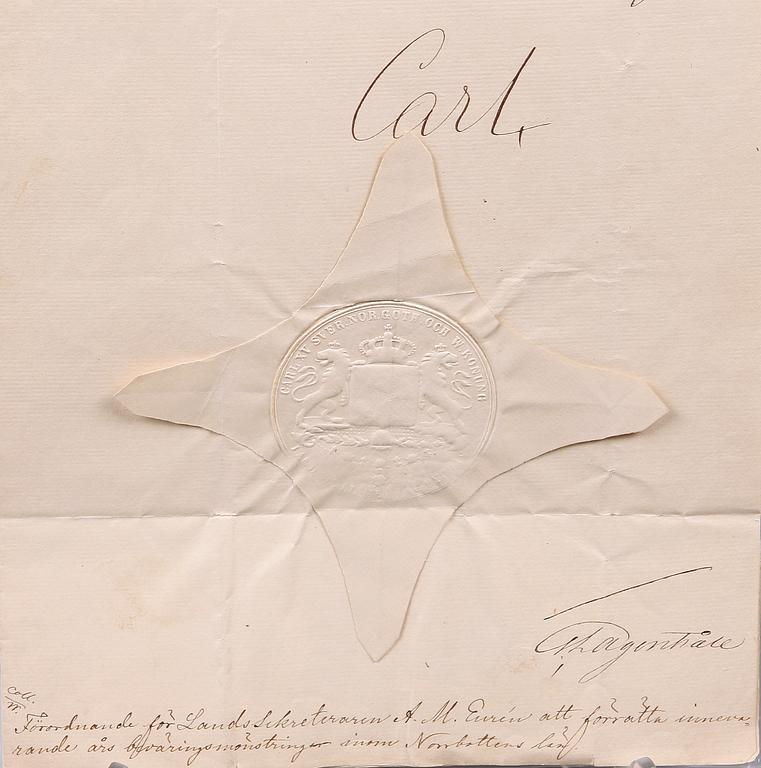 Carl
CARL XV SVER. NOR. GÖTH. OCH W. KONUNG
Coll.
Förordnande för Lands Sekreteraren A. M. Eurén att förrätta inneva-
rande års beväringsmönstringar inom Norrbottens län.